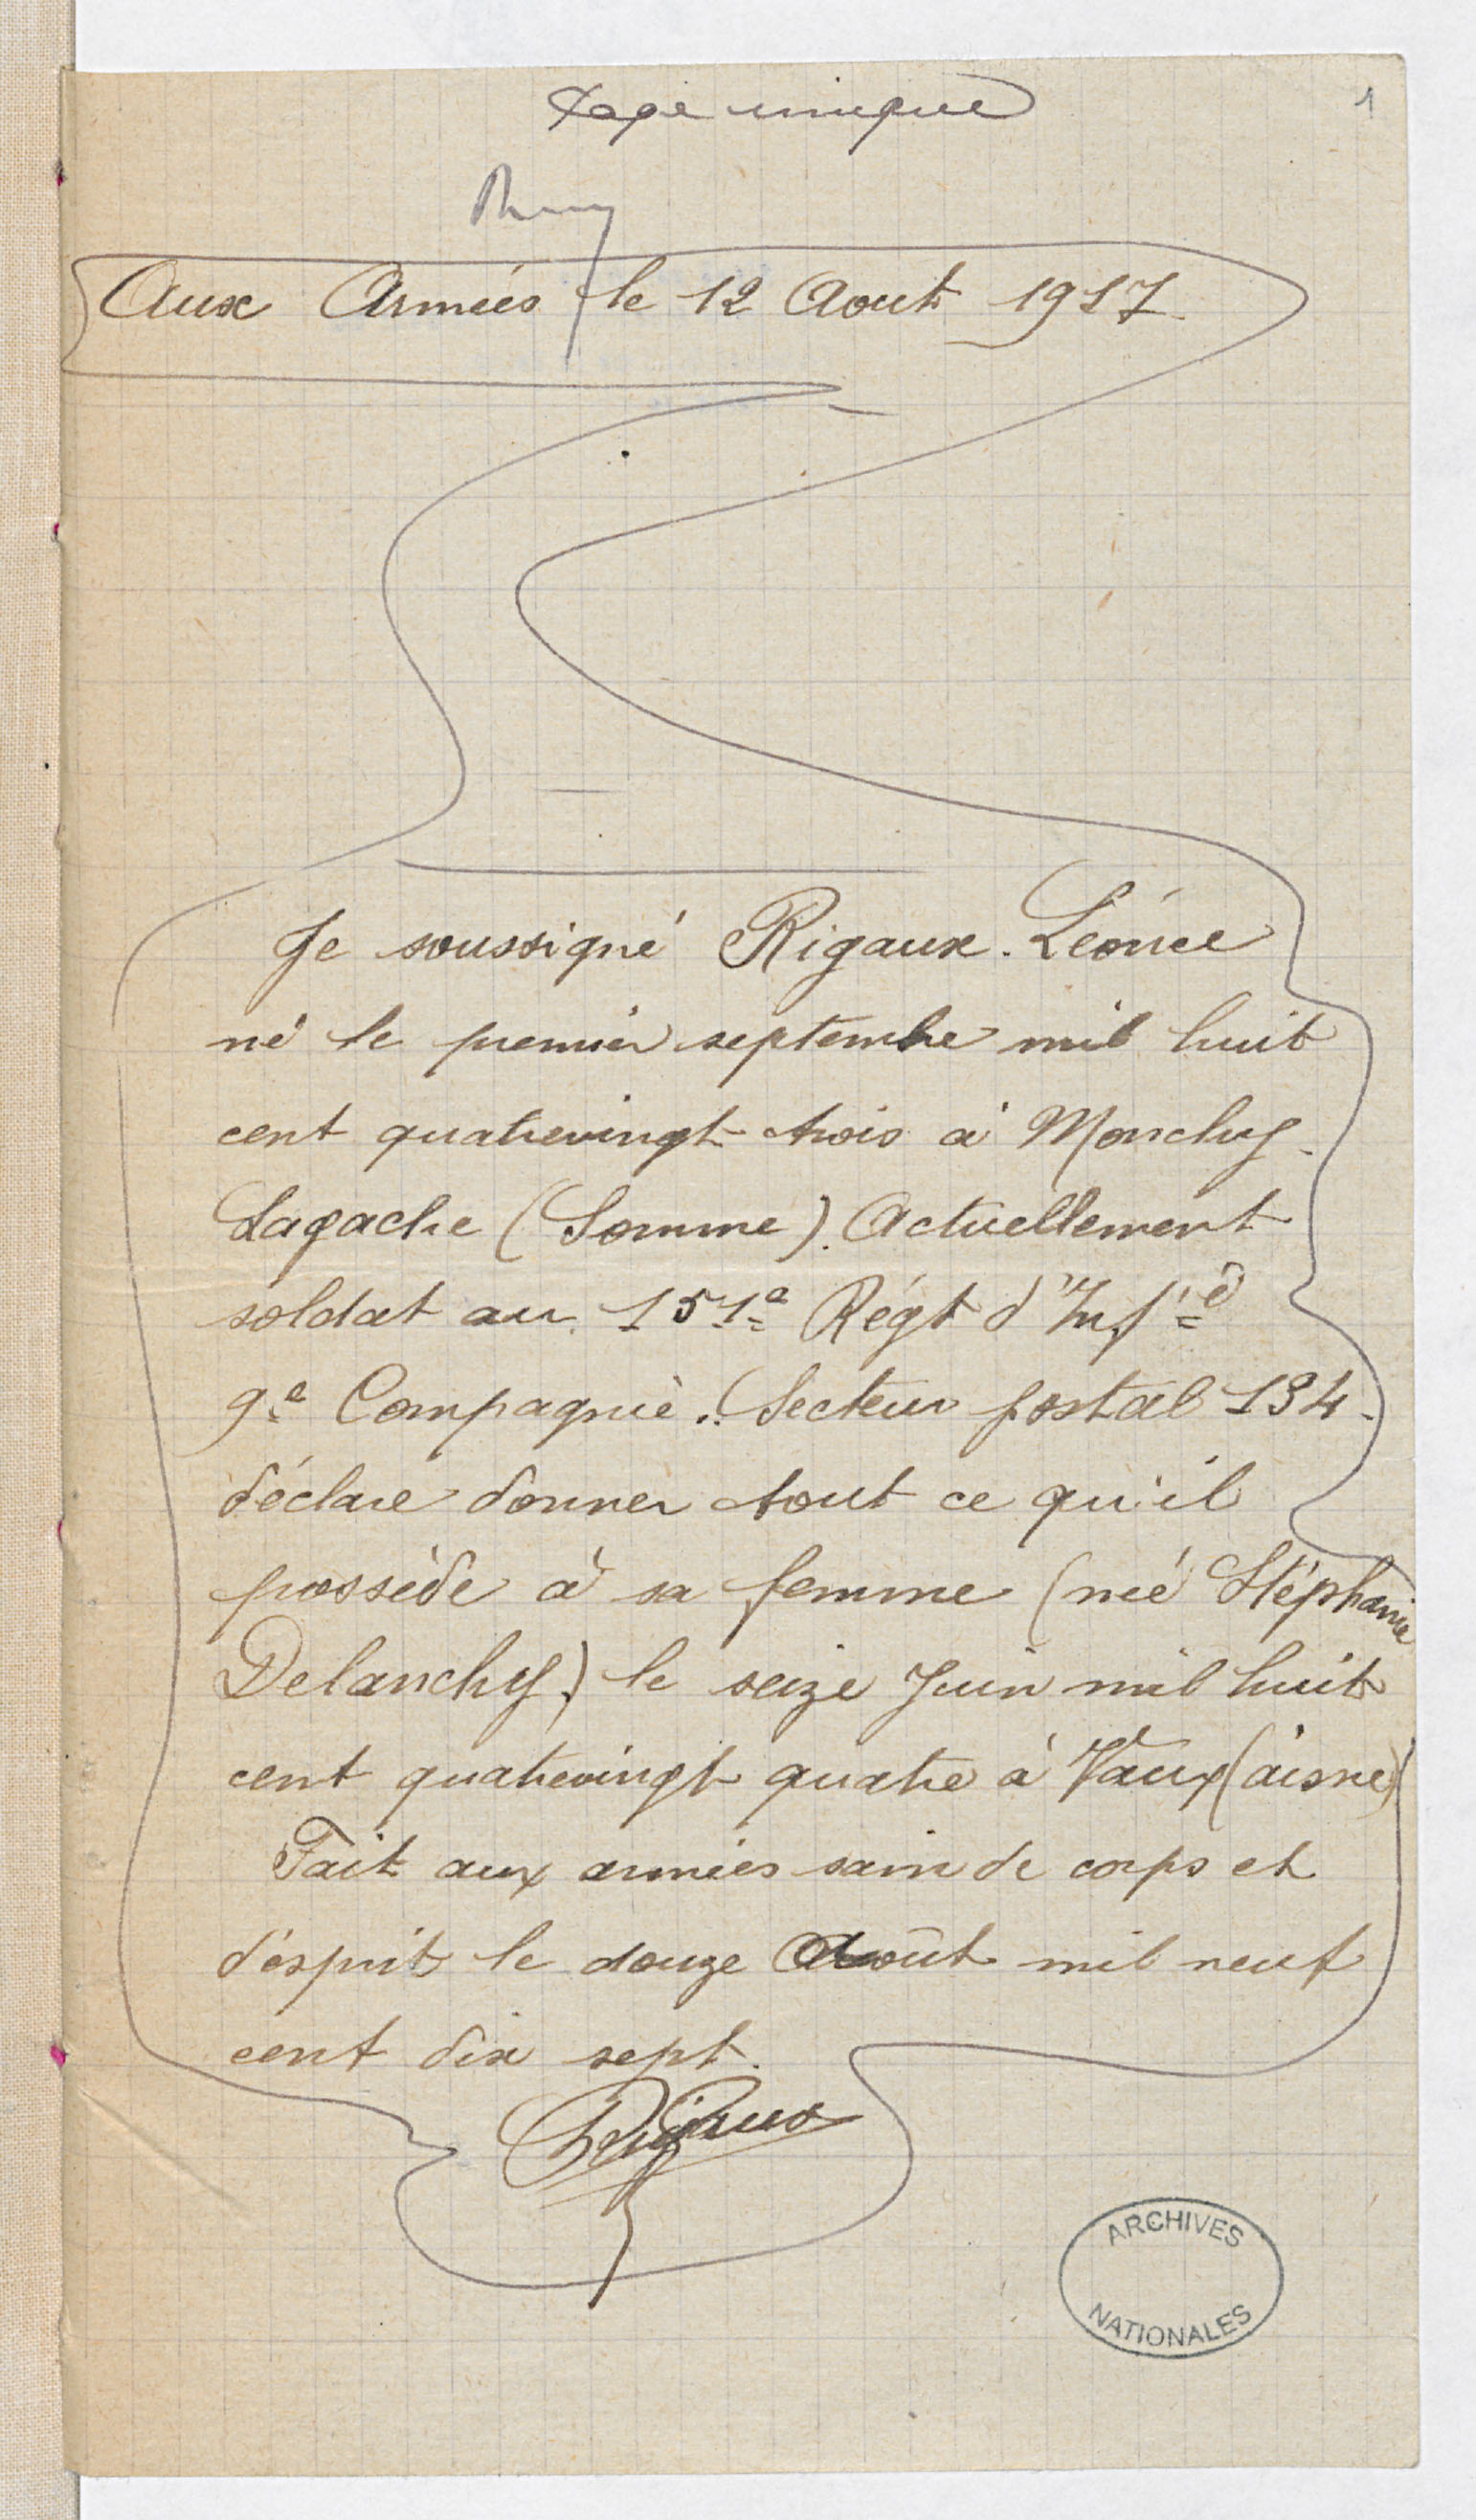 Page unique
1
Aux Armées le 12 Aout 1917.
Je soussigné Rigaux. Léonce
né le premier septembre mil huit
cent quatrevingt trois à Monchy-
Lagache (Somme). Actuellement
soldat au 151e Régt d'Infie
9e Compagnie. Secteur postal 134.
déclare donner tout ce qu'il
possède à sa femme (neé Stéphanie
Delanchy) le seize Juin mil huit
cent quatrevingt quatre à Vaux (aisne)
Fait aux armées sain de corps et
d'esprit le douze Août mil neuf
cent dix sept.
Rigaux
ARCHIVES
NATIONALES